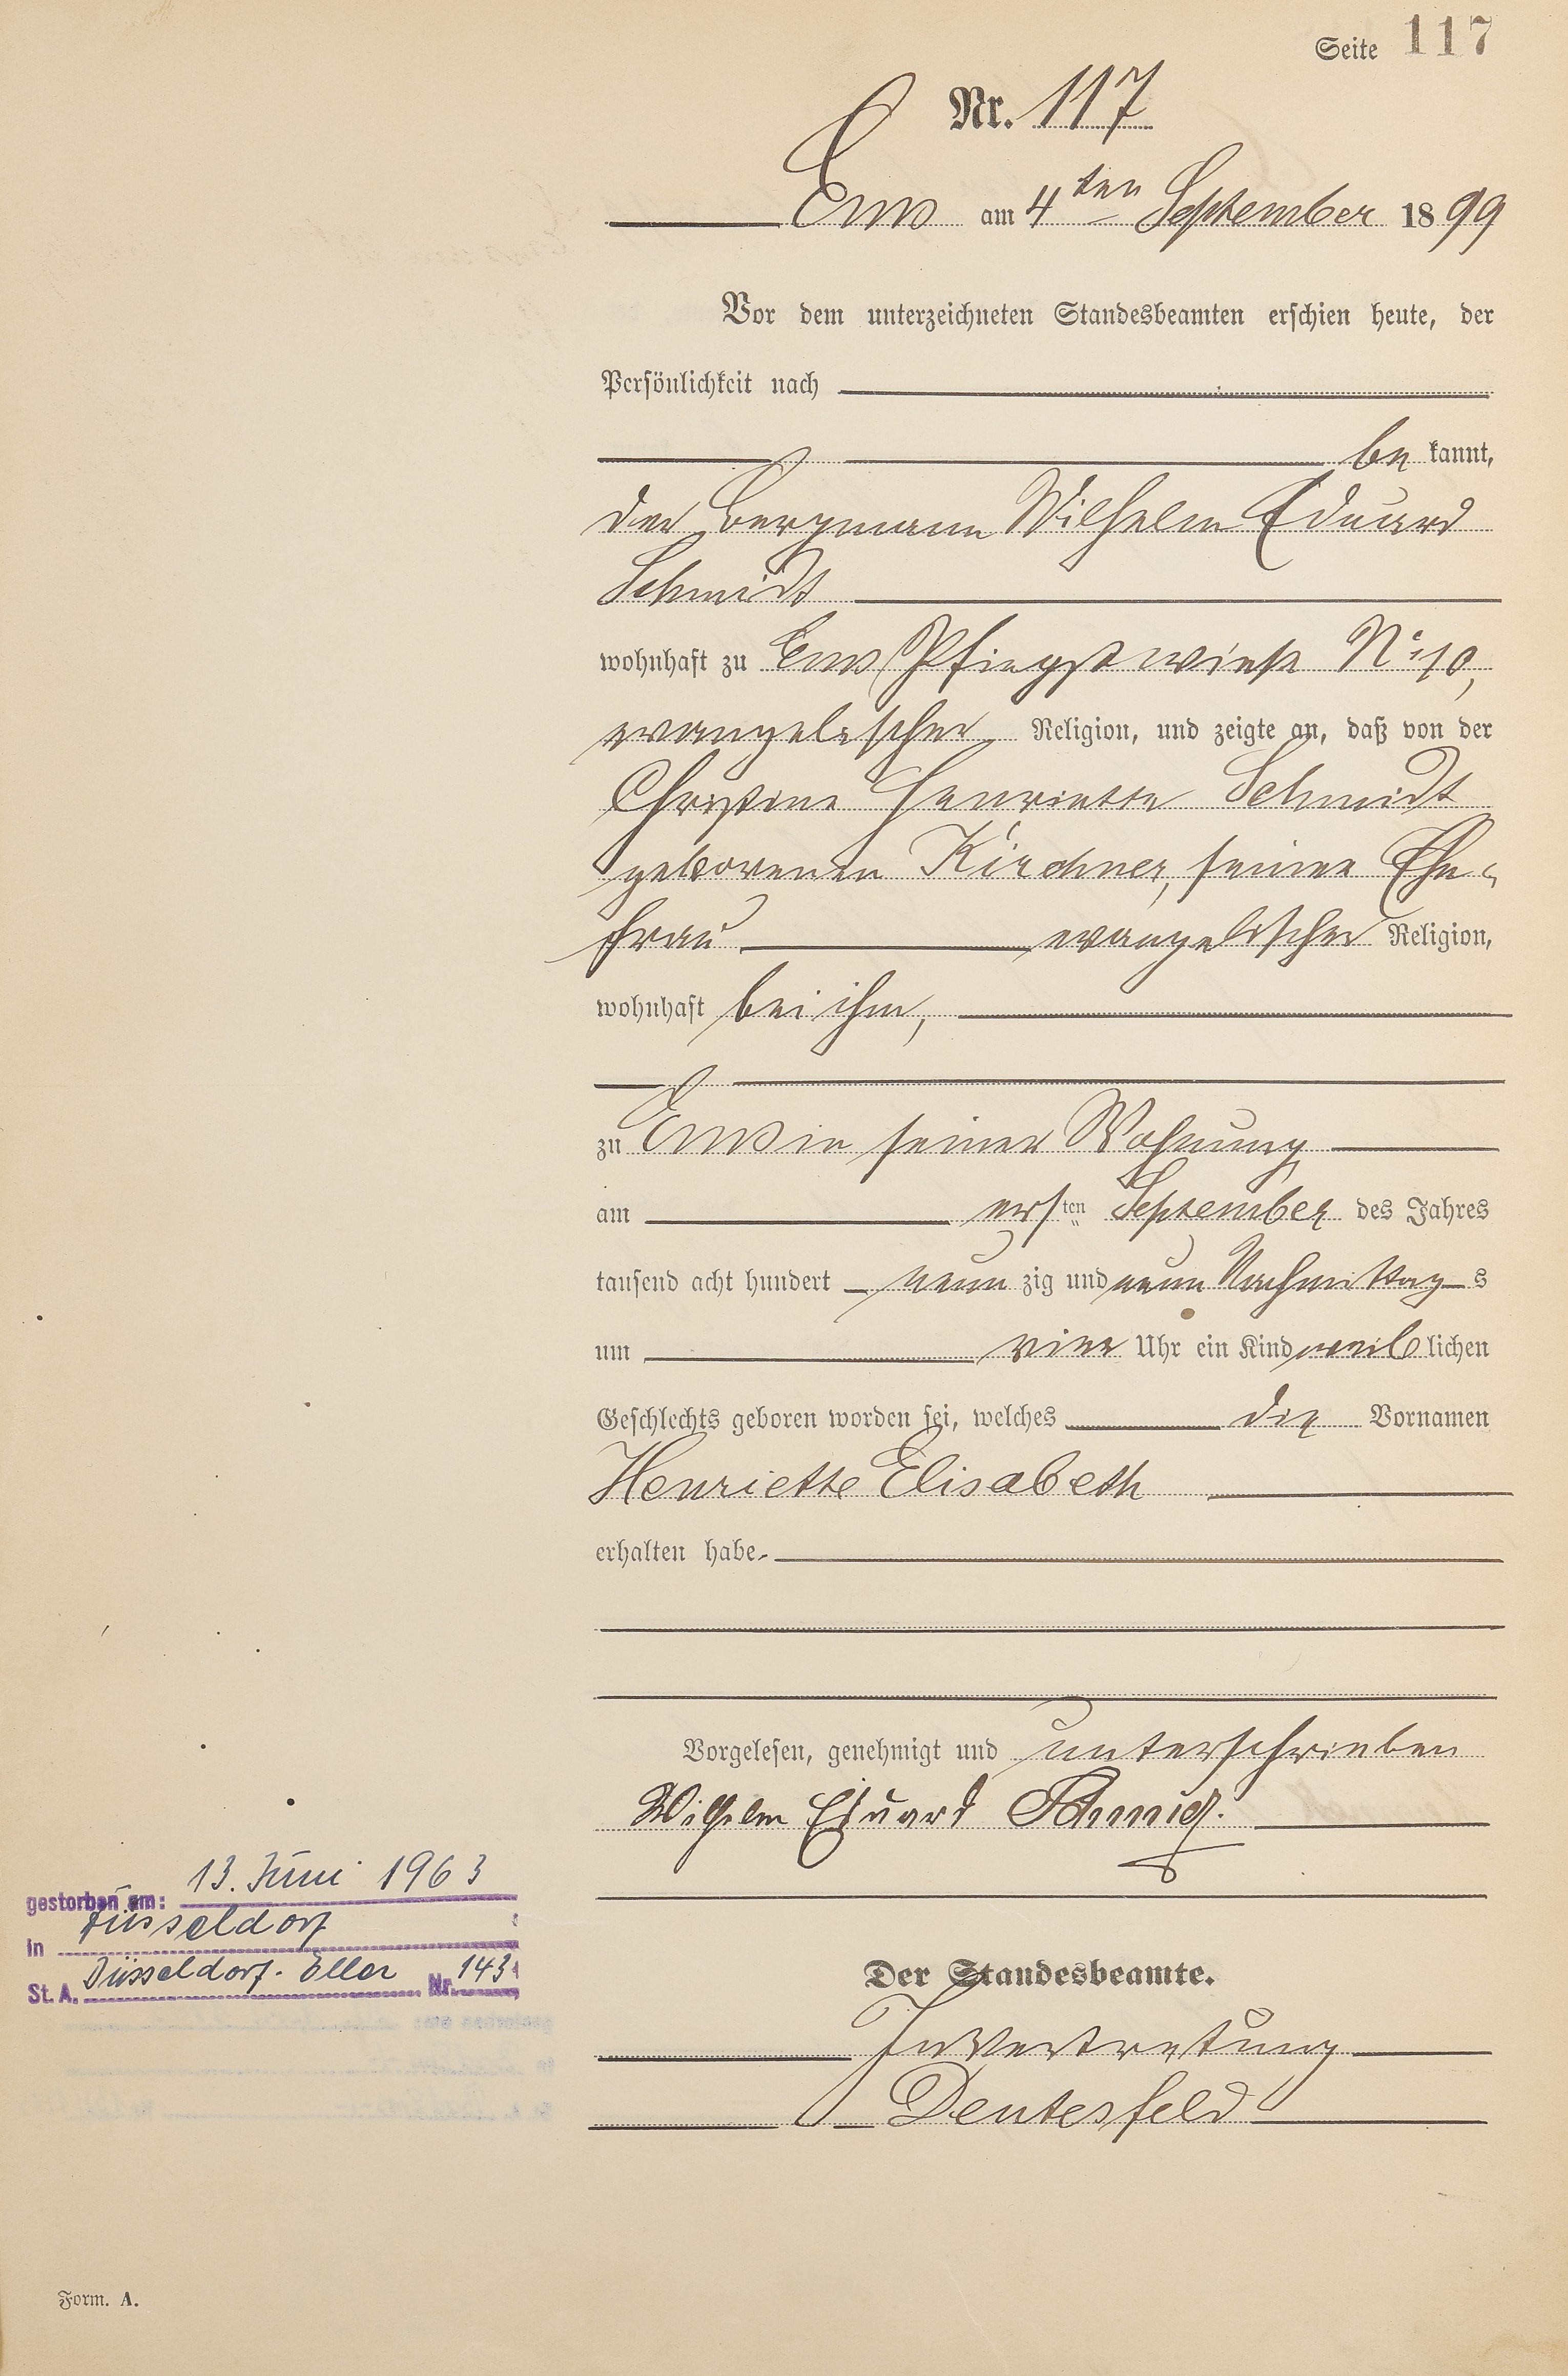 Seite 117
Nr. 117
Ems am 4ten September 1899
Vor dem unterzeichneten Standesbeamten erschien heute, der
Persönlichkeit nach
be kannt,
der Bergmann Wilhelm Eduard
Schmidt
wohnhaft zu Ems Pfingstwiese No 10,
evangelischer Religion, und zeigte an, daß von der
Christine Henriette Schmidt
geborenen Kirchner, seiner Ehe-
frau evangelischer Religion,
wohnhaft bei ihm,
zu Ems in seiner Wohnung
am ersten September des Jahres
tausend acht hundert neun zig und neun Nachmittag s
um vier Uhr ein Kind weib lichen
Geschlechts geboren worden sei, welches die Vornamen
Henriette Elisabeth
erhalten habe.
Vorgelesen, genehmigt und unterschrieben
Wilhelm Eduard Schmidt.
Der Standesbeamte.
In Vertretung
Deutesfeld
gestorben am: 13. Juni 1963
in Düsseldorf
St. A. Düsseldorf-Eller Nr. 143
Form. A.